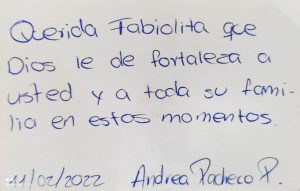 Querida Fabiolita que
Dios le de fortaleza a
usted y a toda su fami-
lia en estos momentos.
11/02/2022 Andrea Pacheco P.